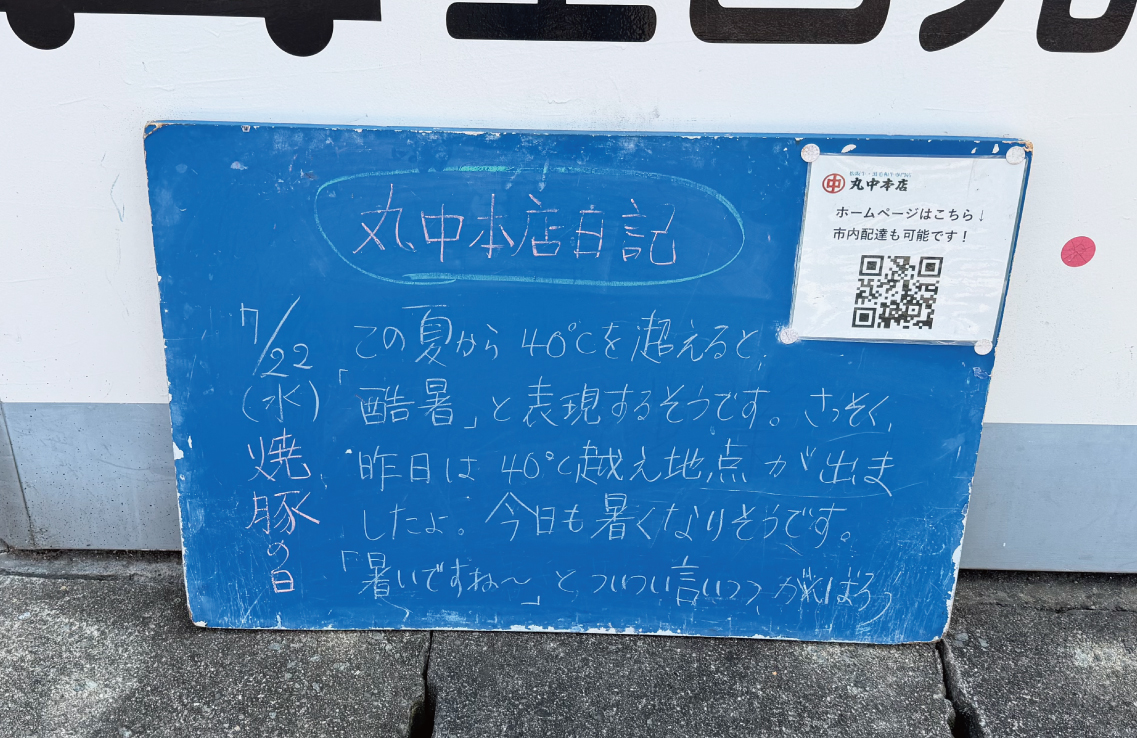 丸中本店日記
中 丸中本店
ホームページはこちら↓
市内配達も可能です!
7/22
(水)
焼豚の日
この夏から40℃を超えると、
「酷暑」と表現するそうです。さっそく、
昨日は40℃越え地点が出ま
したよ。今日も暑くなりそうです。
「暑いですね〜」とついつい言いつつ、がんばろう